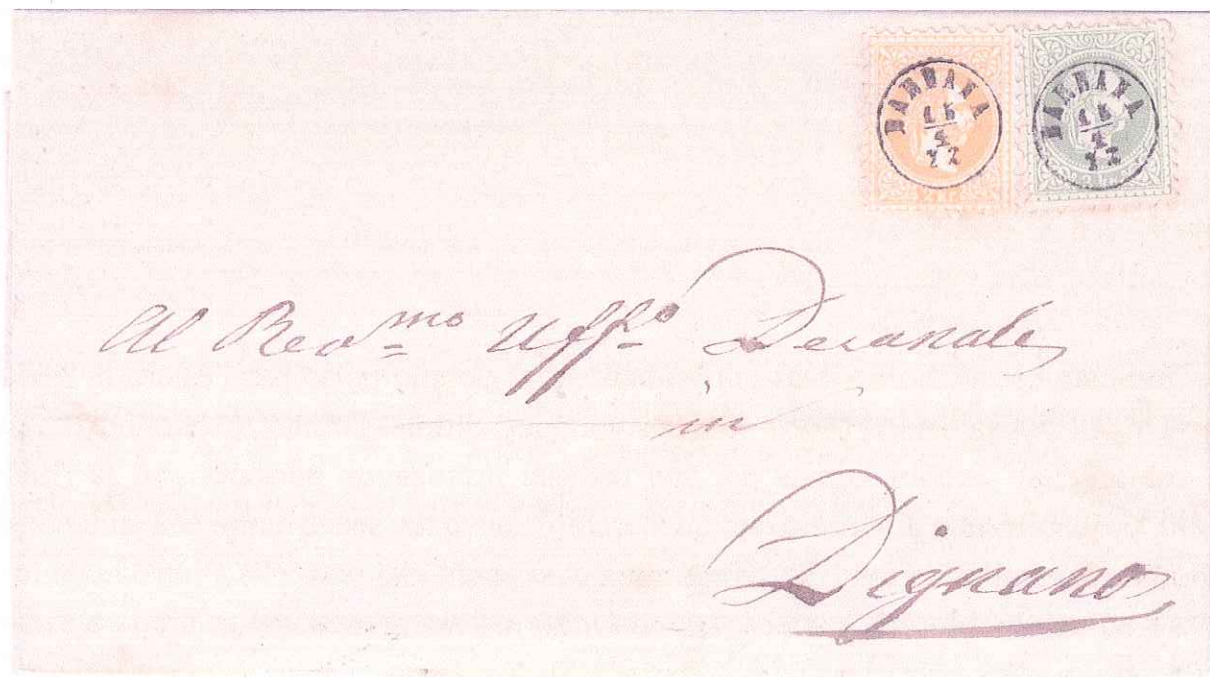 BARBANA
BARBANA
Al Rev.mo Uff.o Decanale
in
Dignano